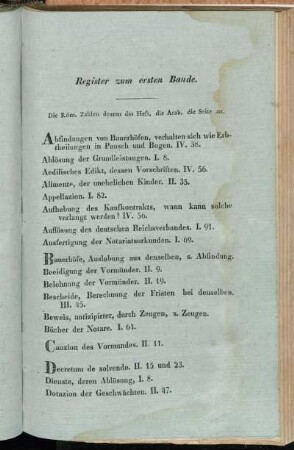 Register zum ersten Bande.
Die Röm. Zahlen deuten das Heft, die Arab. die Seite an.
Abfindungen von Bauerhöfen, verhalten sich wie Erb-
theilungen in Pausch und Bogen. IV. 38.
Ablösung der Grundleistungen. I. 8.
Aedilisches Edikt, dessen Vorschriften. IV. 56.
Alimente, der unehelichen Kinder. II. 35.
Appellazion. I. 82.
Aufhebung des Kaufkontrakts, wann kann solche
verlangt werden? IV. 56.
Auflösung des deutschen Reichsverbandes. I. 91.
Ausfertigung der Notariatsurkunden. I. 69.
Bauerhöfe, Auslobung aus denselben, s. Abfindung.
Beeidigung der Vormünder. II. 9.
Belohnung der Vormünder. II. 19.
Bescheide, Berechnung der Fristen bei denselben.
III. 45.
Beweis, notifizirter, durch Zeugen, s. Zeugen.
Bücher der Notare. I. 61.
Cauzion des Vormundes. II. 11.
Decretum de solvendo. II. 15 und 23.
Dienste, deren Ablösung, I. 8.
Dotazion der Geschwächten. II. 47.